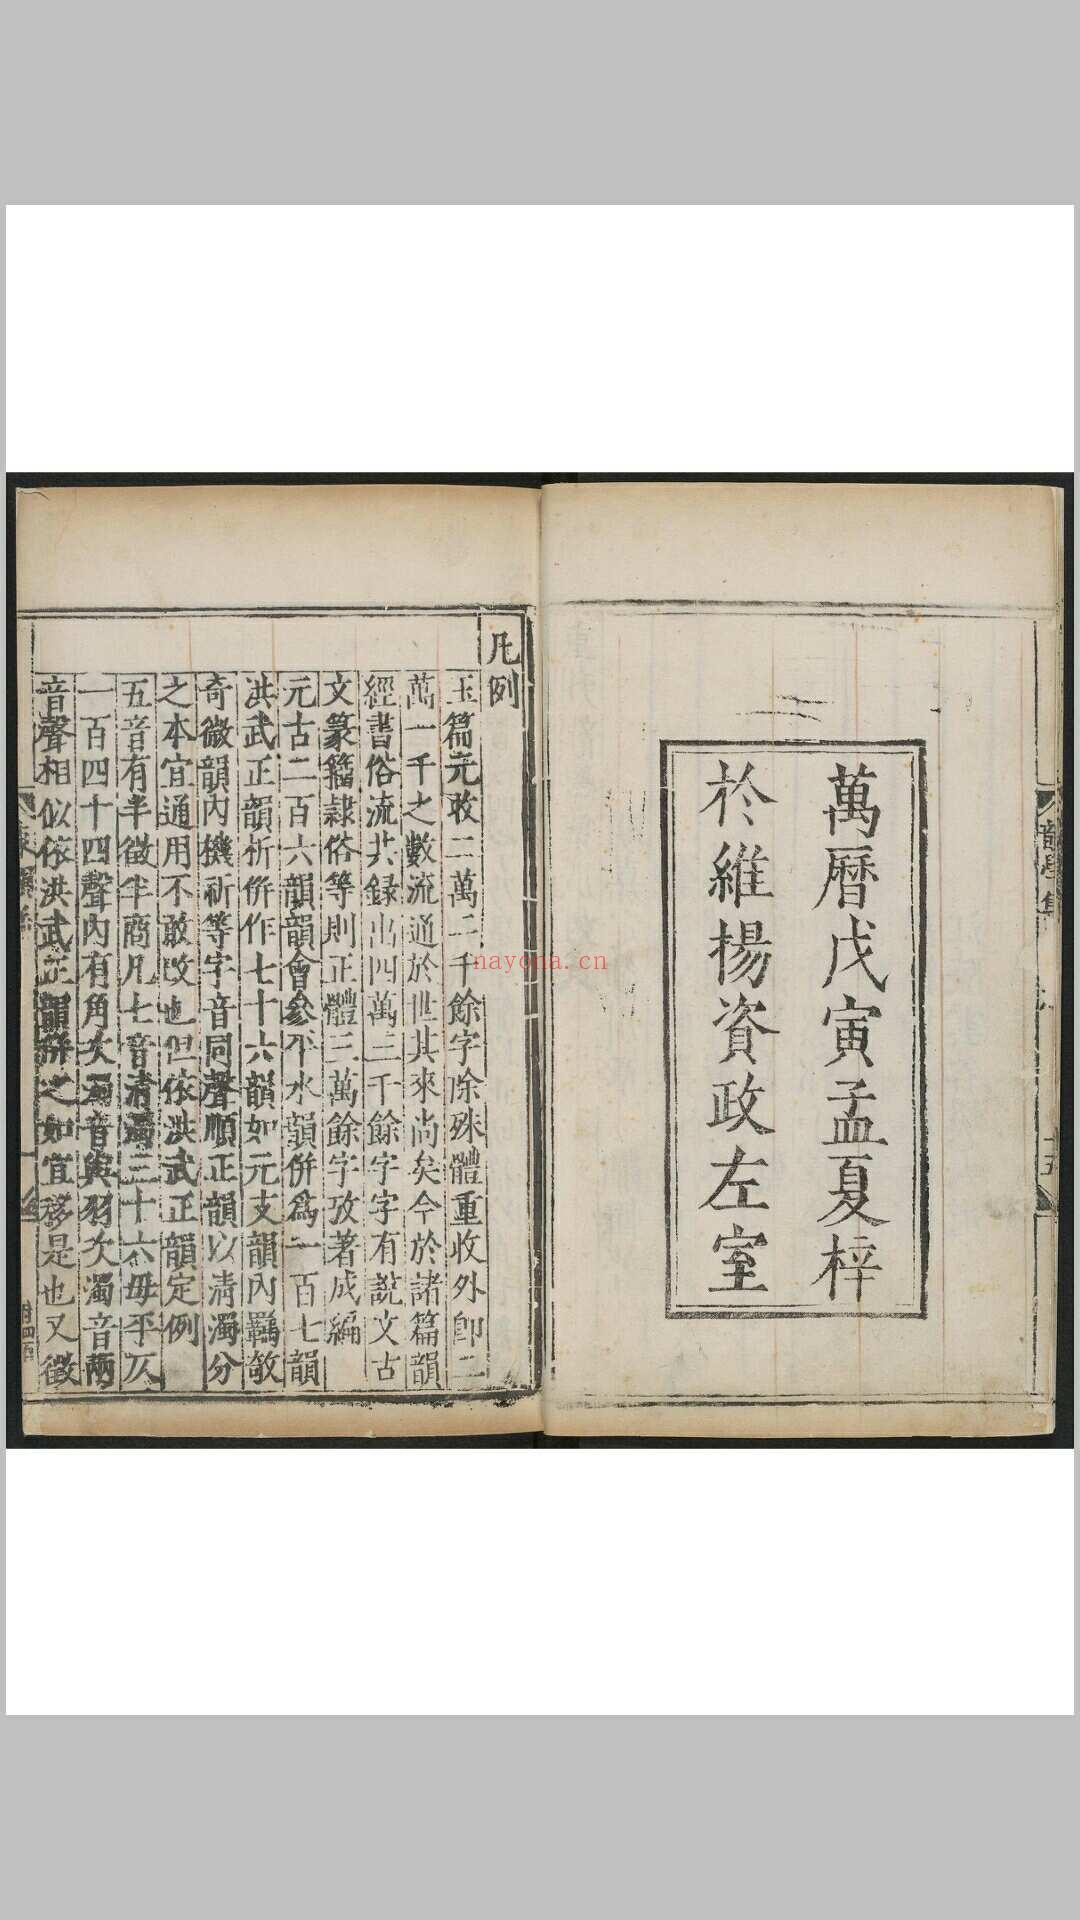 萬曆戊寅孟夏梓
於維揚資政左室
凡例
玉篇元收二萬二千餘字除殊體重收外卽二
萬一千之數流通於世其來尚矣今於諸篇韻
經書俗流共録出四萬三千餘字字有説文古
文篆籀隷俗等則正體三萬餘字攷著成編
元古二百六韻韻會參平水韻併爲一百七韻
洪武正韻析併作七十六韻如元支韻內羈欹
奇微韻內機祈等字音同聲順正韻以清濁分
之本宜通用不敢改也但依洪武正韻定例
五音有半徵半商凡七音清濁三十六毋平仄
一百四十四聲內有角次濁音與羽次濁音兩
音聲相似依洪武正韻併之如宜移是也又徵
nayona.cn